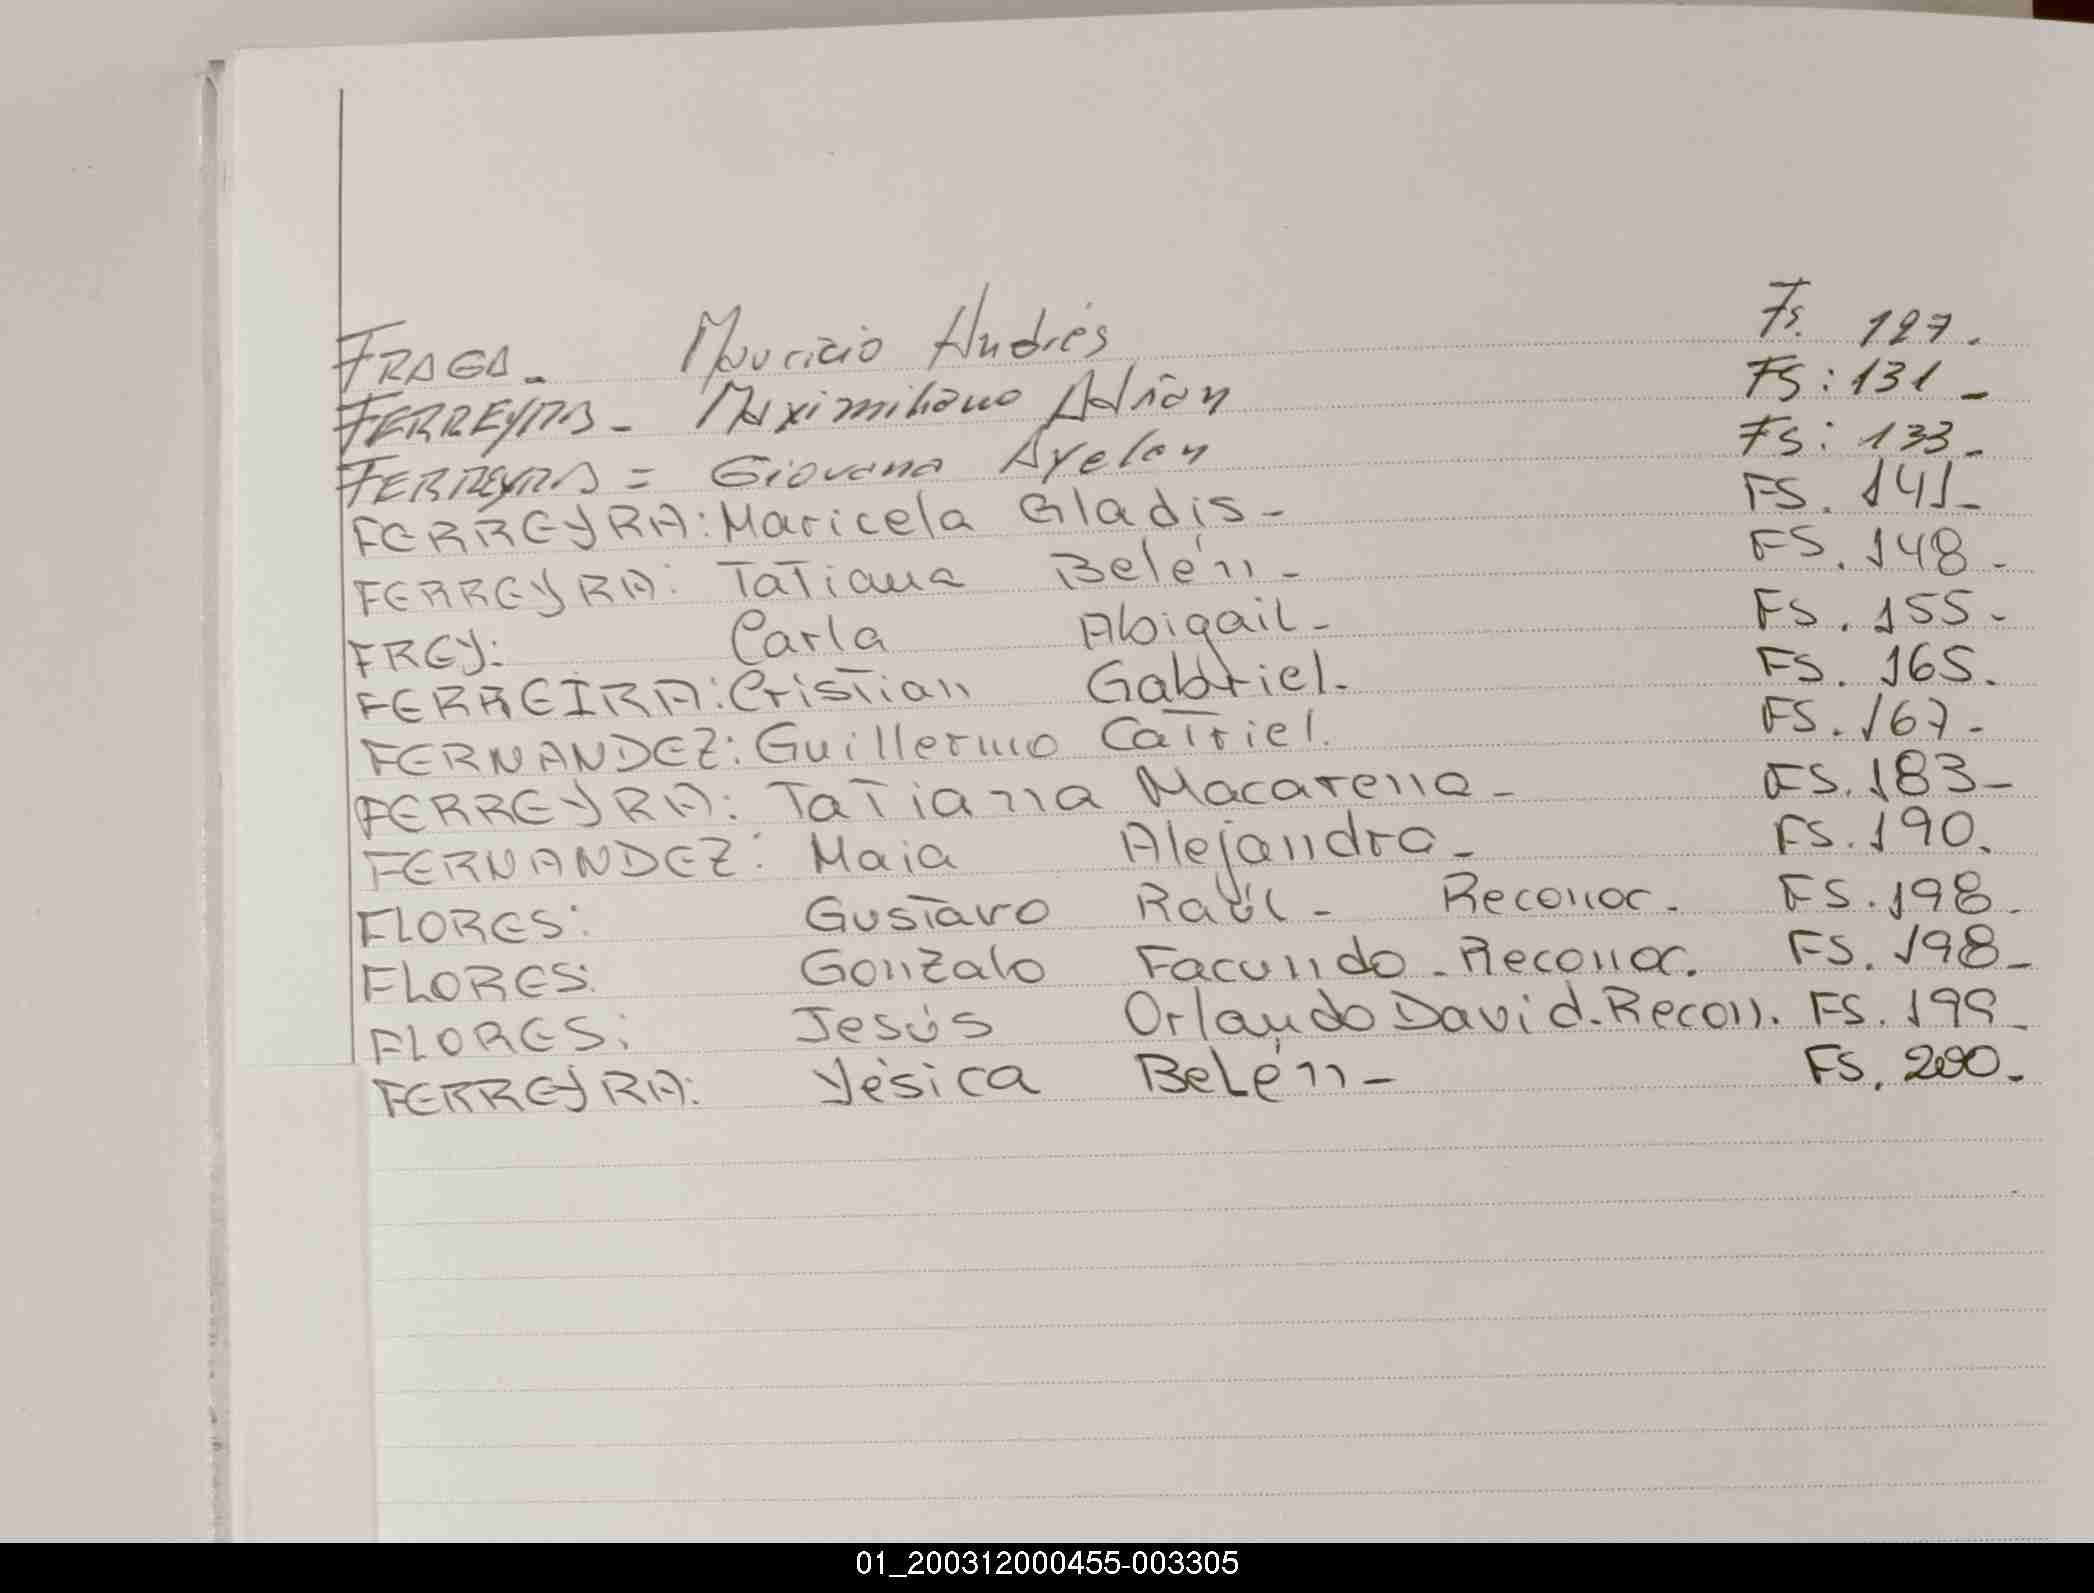 FRAGA - Mauricio Andrés Fs. 127.
FERREYRA - Maximiliano Adrián FS: 131 -
FERREYRA = Giovana Ayelen Fs: 133 -
FERREYRA: Maricela Gladis - FS. 141 -
FERREYRA: Tatiana Belén - FS. 148 -
FREY: Carla Abigail - FS. 155 -
FERREIRA: Cristian Gabriel. FS. 165.
FERNANDEZ: Guillermo Catriel. FS. 167 -
FERREYRA: Tatiana Macarena - FS. 183 -
FERNANDEZ: Maia Alejandra - FS. 190.
FLORES: Gustavo Raúl - Reconoc. FS. 198 -
FLORES: Gonzalo Facundo - Reconoc. FS. 198 -
FLORES: Jesús Orlando David. Recon. FS. 199 -
FERREYRA: Yésica Belén - FS. 200 -
01_200312000455-003305